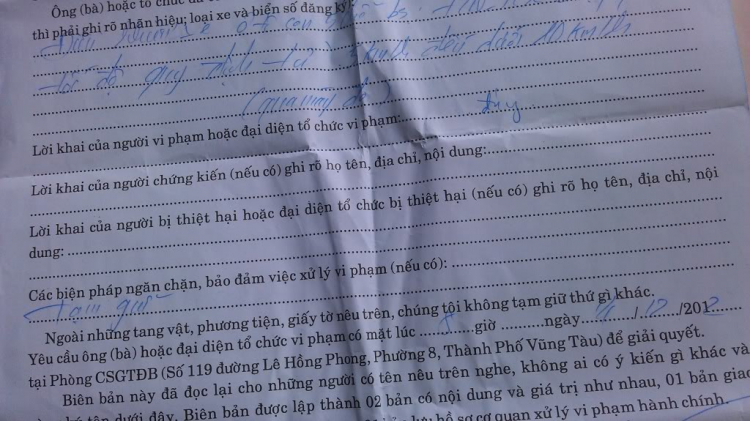 Ông (bà) hoặc tổ chức đã có
thì phải ghi rõ nhãn hiệu; loại xe và biển số đăng ký
tốc độ quy định từ 5 km/h đến dưới 10 km/h
(qua máy đo)
Lời khai của người vi phạm hoặc đại diện tổ chức vi phạm: đúng
Lời khai của người chứng kiến (nếu có) ghi rõ họ tên, địa chỉ, nội dung:
Lời khai của người bị thiệt hại hoặc đại diện tổ chức bị thiệt hại (nếu có) ghi rõ họ tên, địa chỉ, nội
dung:
Các biện pháp ngăn chặn, bảo đảm việc xử lý vi phạm (nếu có):
Tạm giữ
Ngoài những tang vật, phương tiện, giấy tờ nêu trên, chúng tôi không tạm giữ thứ gì khác.
Yêu cầu ông (bà) hoặc đại diện tổ chức vi phạm có mặt lúc giờ ngày / 12 /2012
tại Phòng CSGTĐB (Số 119 đường Lê Hồng Phong, Phường 8, Thành Phố Vũng Tàu) để giải quyết.
Biên bản này đã đọc lại cho những người có tên nêu trên nghe, không ai có ý kiến gì khác và
tên dưới đây. Biên bản được lập thành 02 bản có nội dung và giá trị như nhau, 01 bản giao
lưu hồ sơ cơ quan xử lý vi phạm hành chính.